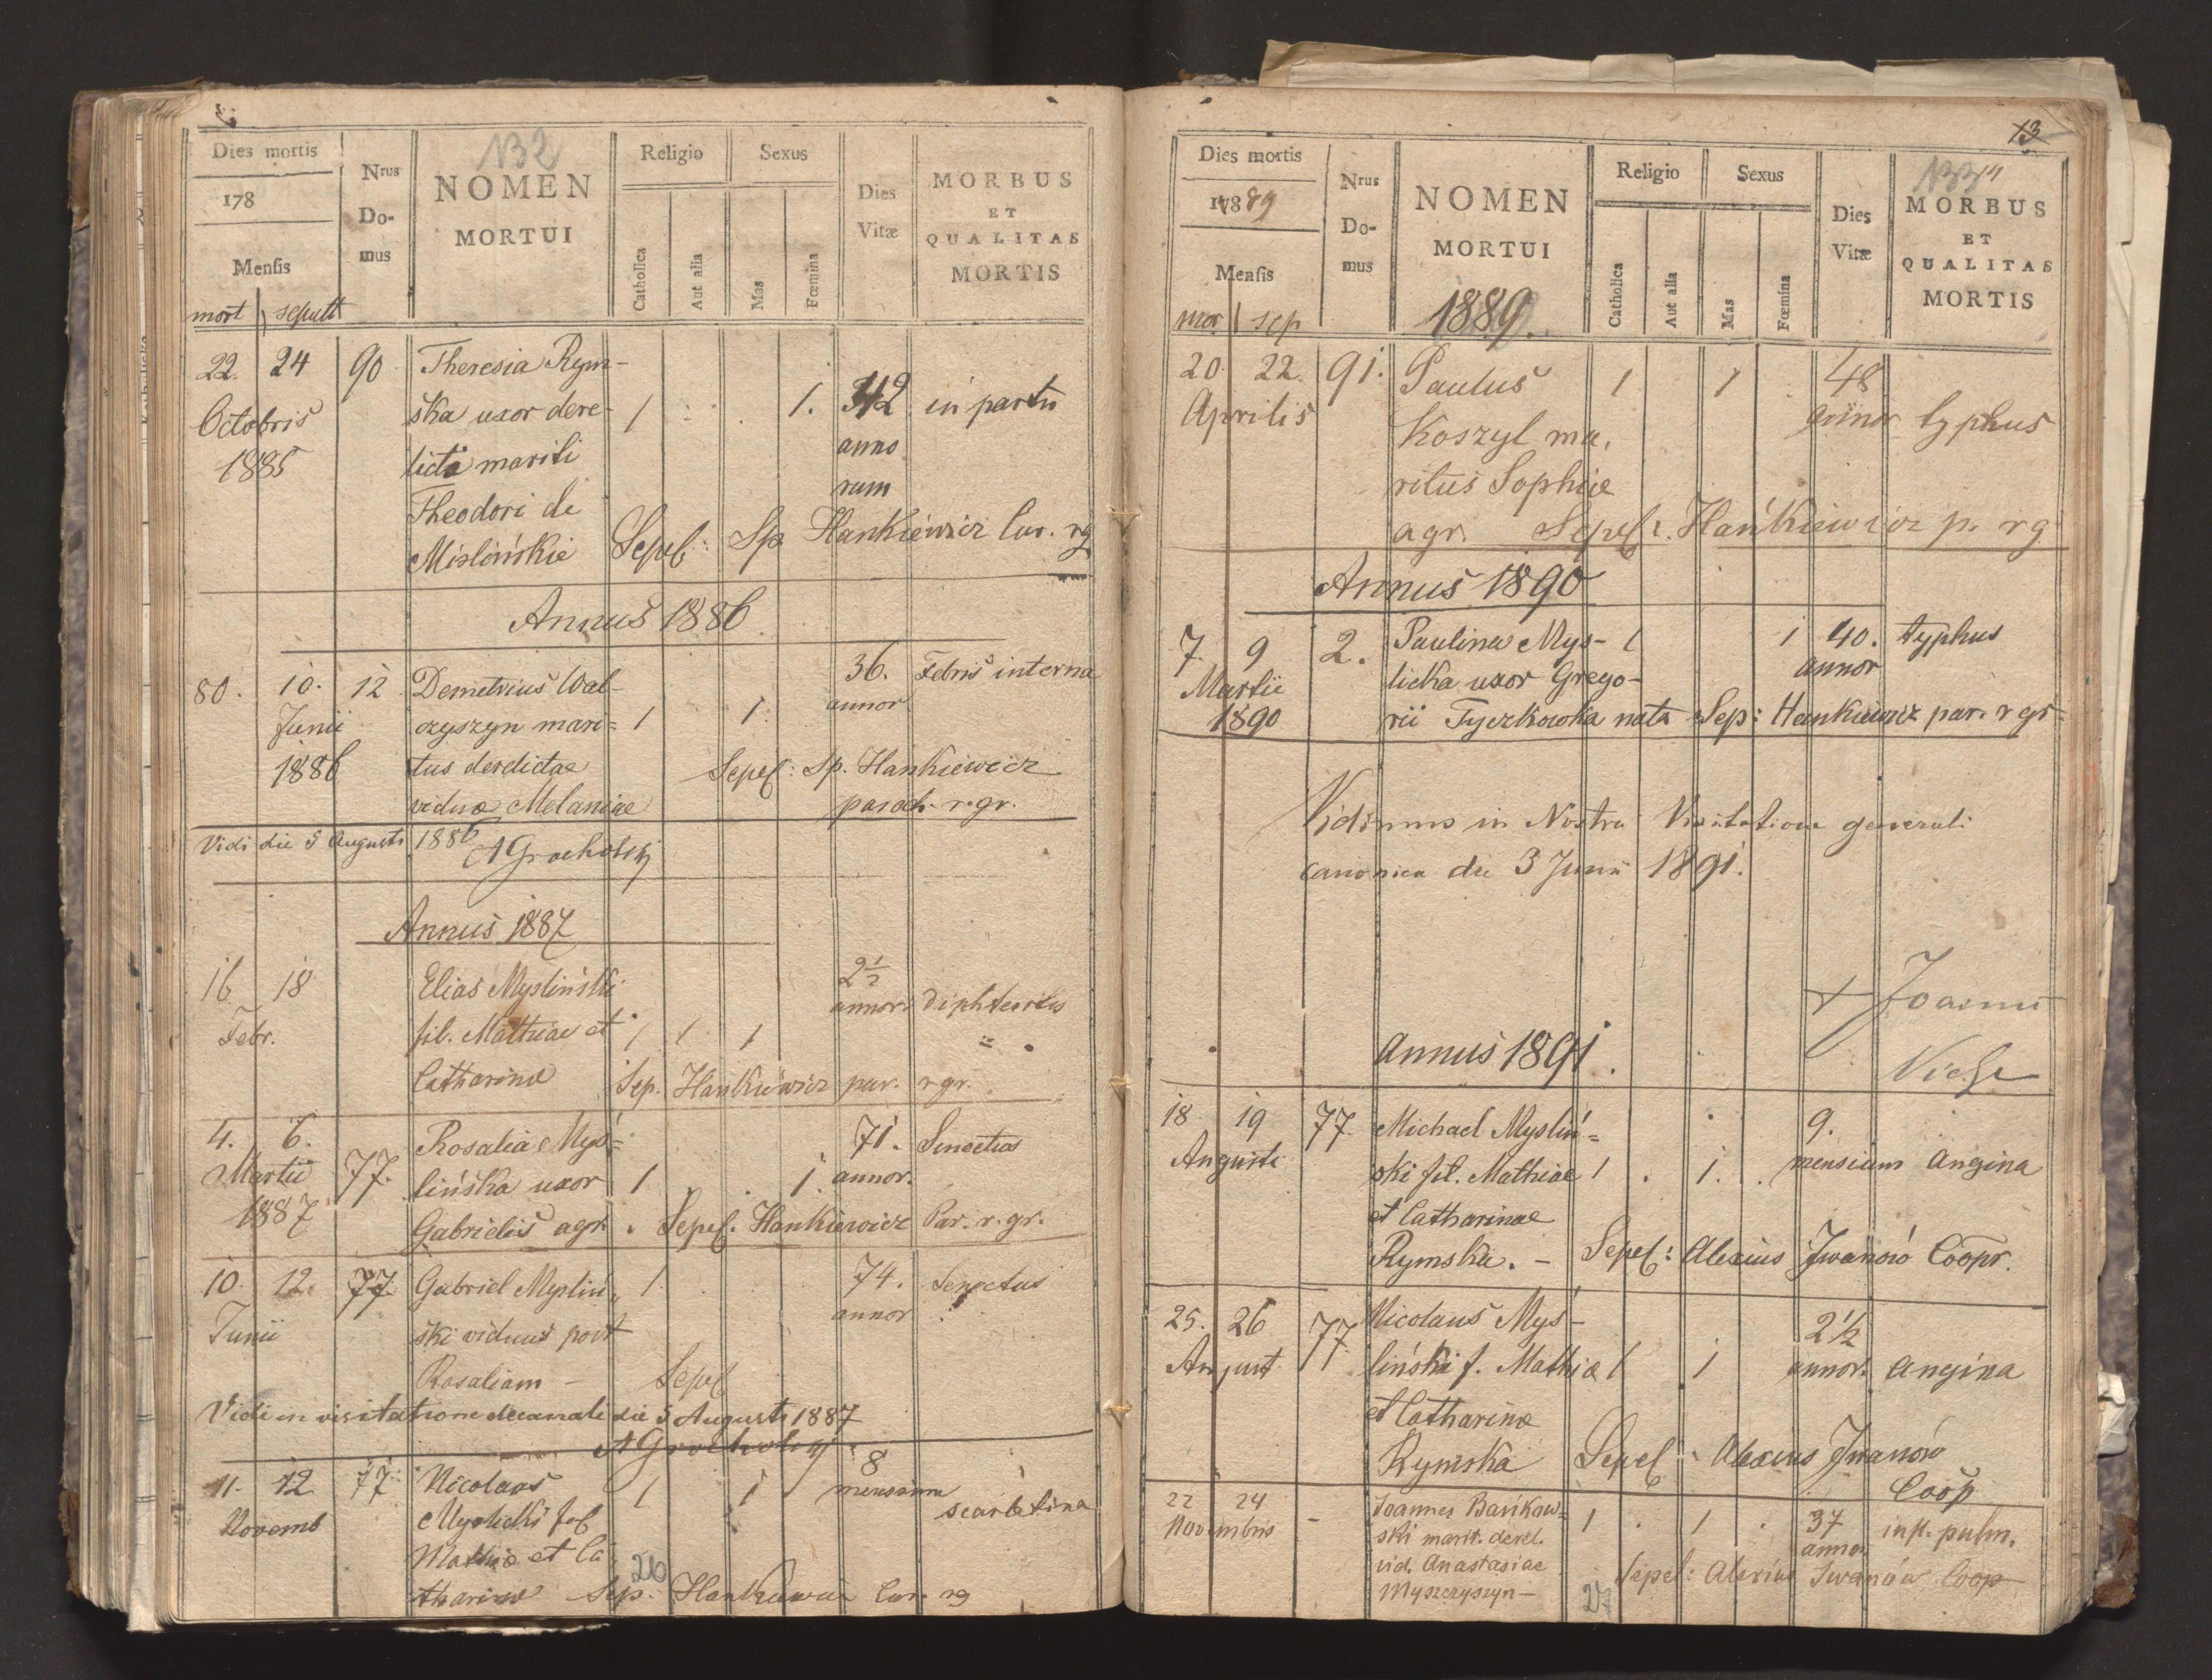 132
Dies mortis
178
Mensis
mort | sepult
Nrus Do- mus
NOMEN
MORTUI
Religio
Catholica
Aut alia
Sexus
Mas
Fœmina
Dies Vitæ
MORBUS
ET
QUALITAS
MORTIS
22. 24 90 Theresia Rym-
Octobris ska uxor dere- 1 1. 42 in partu
1885 licta mariti anno
Theodori de rum
Mislińskie Sepel: Sp Hankiewicz Cur. rg
Annus 1886
80. 10. 12 Demetrius Wal- 36. Febris interna
Junii czyszyn mari= 1 1. annor
1886 tus derelictae Sepel: Sp. Hankiewicz
viduae Melaniae paroch. r. gr.
Vidi die 5 Augusti 1886
AGrocholskj
Annus 1887
16 18 Elias Myśliński 2 1/2
Febr. fil. Mathiae et 1 1 1 annor. diphteritis
Catharinæ Sep. Hankiewicz par. r gr.
4. 6. Rosalia Myś= 71. Senectus
Martii 77. lińska uxor 1 1. annor.
1887 Gabrielis agr. Sepel. Hankiewicz Par. r. gr.
10. 12. 77. Gabriel Myśliń- 1 74. Senectus
Junii ski viduus post annor
Rosaliam - Sepel
Vidi in visitatione decanali die 5 Augusti 1887
AGrocholskj
11. 12 77. Nicolaos 1 1 8
Novemb Myslicki fil mensium scarletina
Mathiæ et Ca
tharinæ Sep: Hankiewicz Cur. rg
26
13
133
Dies mortis
178 89
Mensis
mor | sep
Nrus Do- mus
NOMEN
MORTUI
1889.
Religio
Catholica
Aut alia
Sexus
Mas
Fœmina
Dies Vitæ
MORBUS
ET
QUALITAS
MORTIS
20. 22. 91. Paulus 1 1 48
Aprilis Koszyl ma, annor typhus
ritus Sophiæ
agr. Sepel: Hańkiewicz p. rg
Annus 1890
7. 9 2. Paulina Mys- 1 1 40. typhus
Martii licka uxor Grego- annor
1890 rii Tyczkowska nata Sep: Hankiewicz par. r gr
Vidimus in Nostra Visitatione generali
canonica die 3 Junii 1891.
+ Joannes
Annus 1891.
18. 19 77. Michael Myśliń= 9.
Augusti ski fil. Mathiæ 1 . 1. . mensium Angina
et Catharinae
Rymska. - Sepel: Alexius Iwanów Coopr.
25. 26 77 Nicolaus Myś- 2 1/2
August. liński f. Mathiæ 1 1 annor. Angina
et Catharinæ
Rymska Sepel: Alexius Iwanów
Coop
22 24 - Joannes Bańkow- 1 . 1 . 37 infl. pulm.
Novembris ski marit. derel. annor
vid. Anastasiae Sepel: Alexius Iwanów Coop
Myszczyszyn-